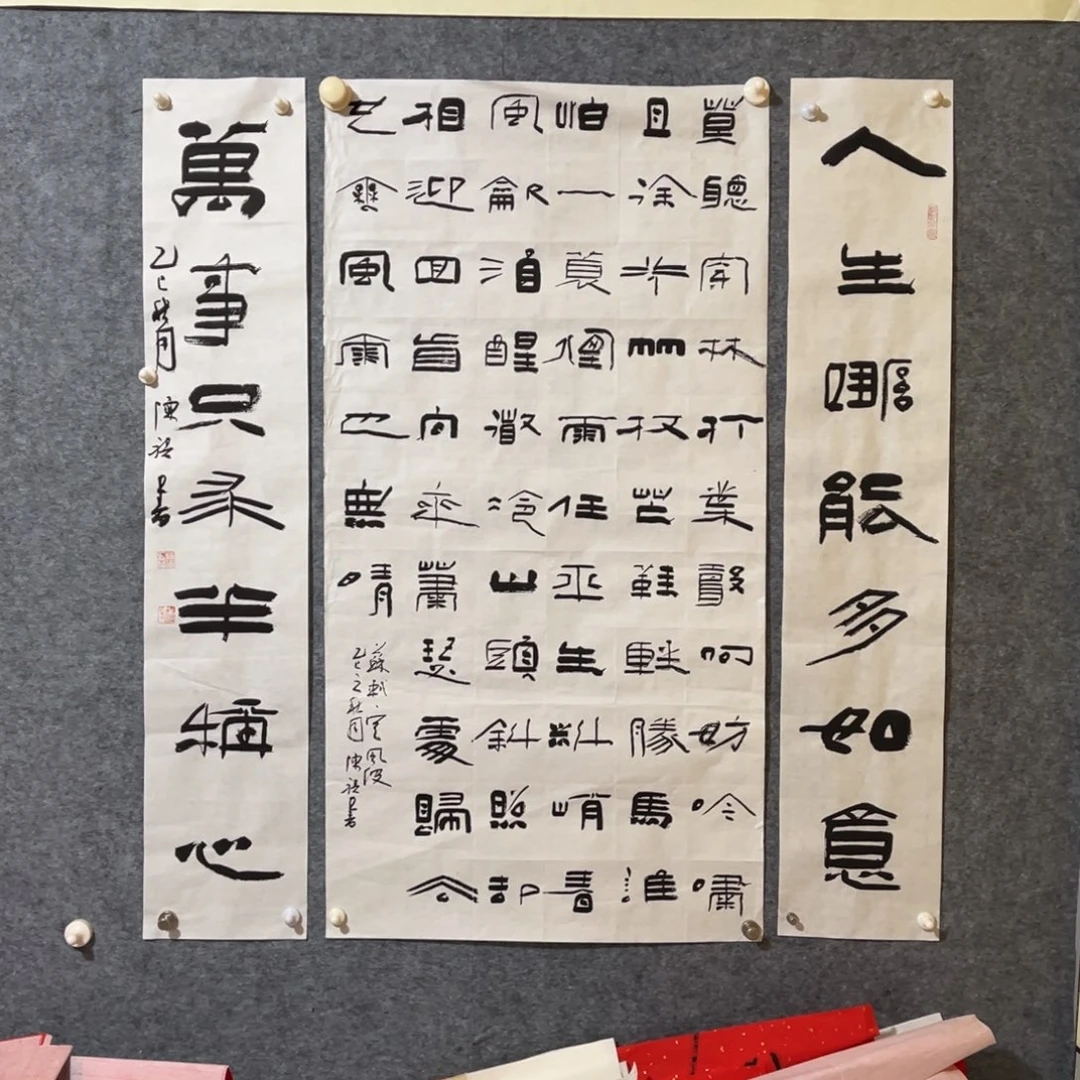 人生哪能多如意
莫聽穿林打葉聲何妨吟嘯
且徐行竹杖芒鞋輕勝馬誰
怕一蓑煙雨任平生料峭春
風吹酒醒微冷山頭斜照却
相迎回首向來蕭瑟處歸去
也無風雨也無晴
蘇軾定風波
乙巳之秋月陳書
萬事只求半稱心
乙巳秋月陳書